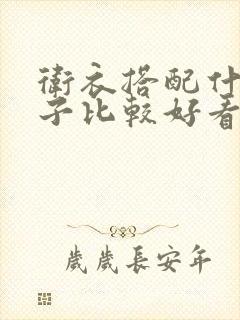 衛衣搭配什
子比較好看
歲歲長安年